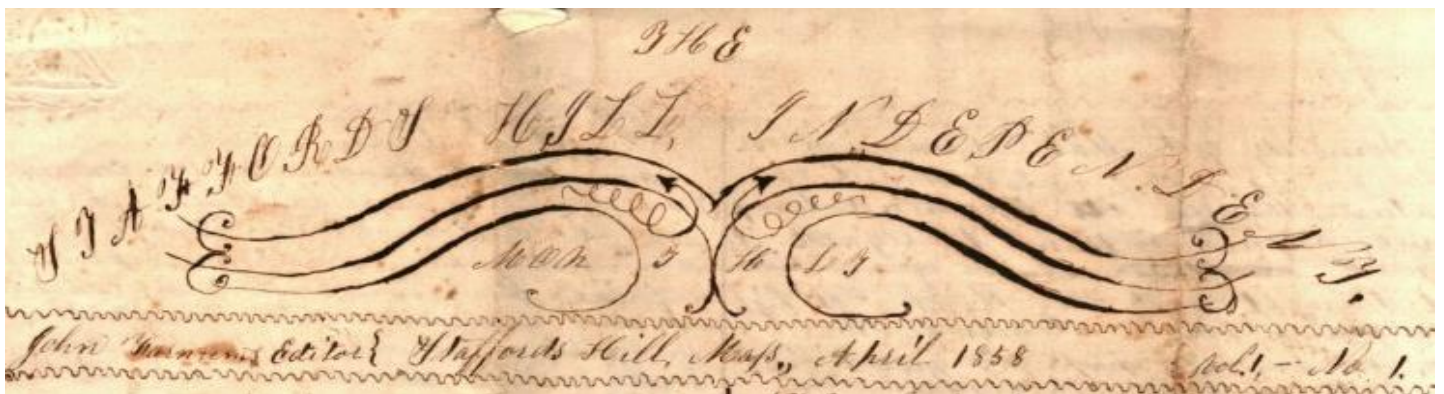 THE
STAFFORDS HILL, INDEPENDENT.
MONTHLY
John Farnum Editor{ Staffords Hill, Mass., April 1858 Vol. 1, – No. 1.